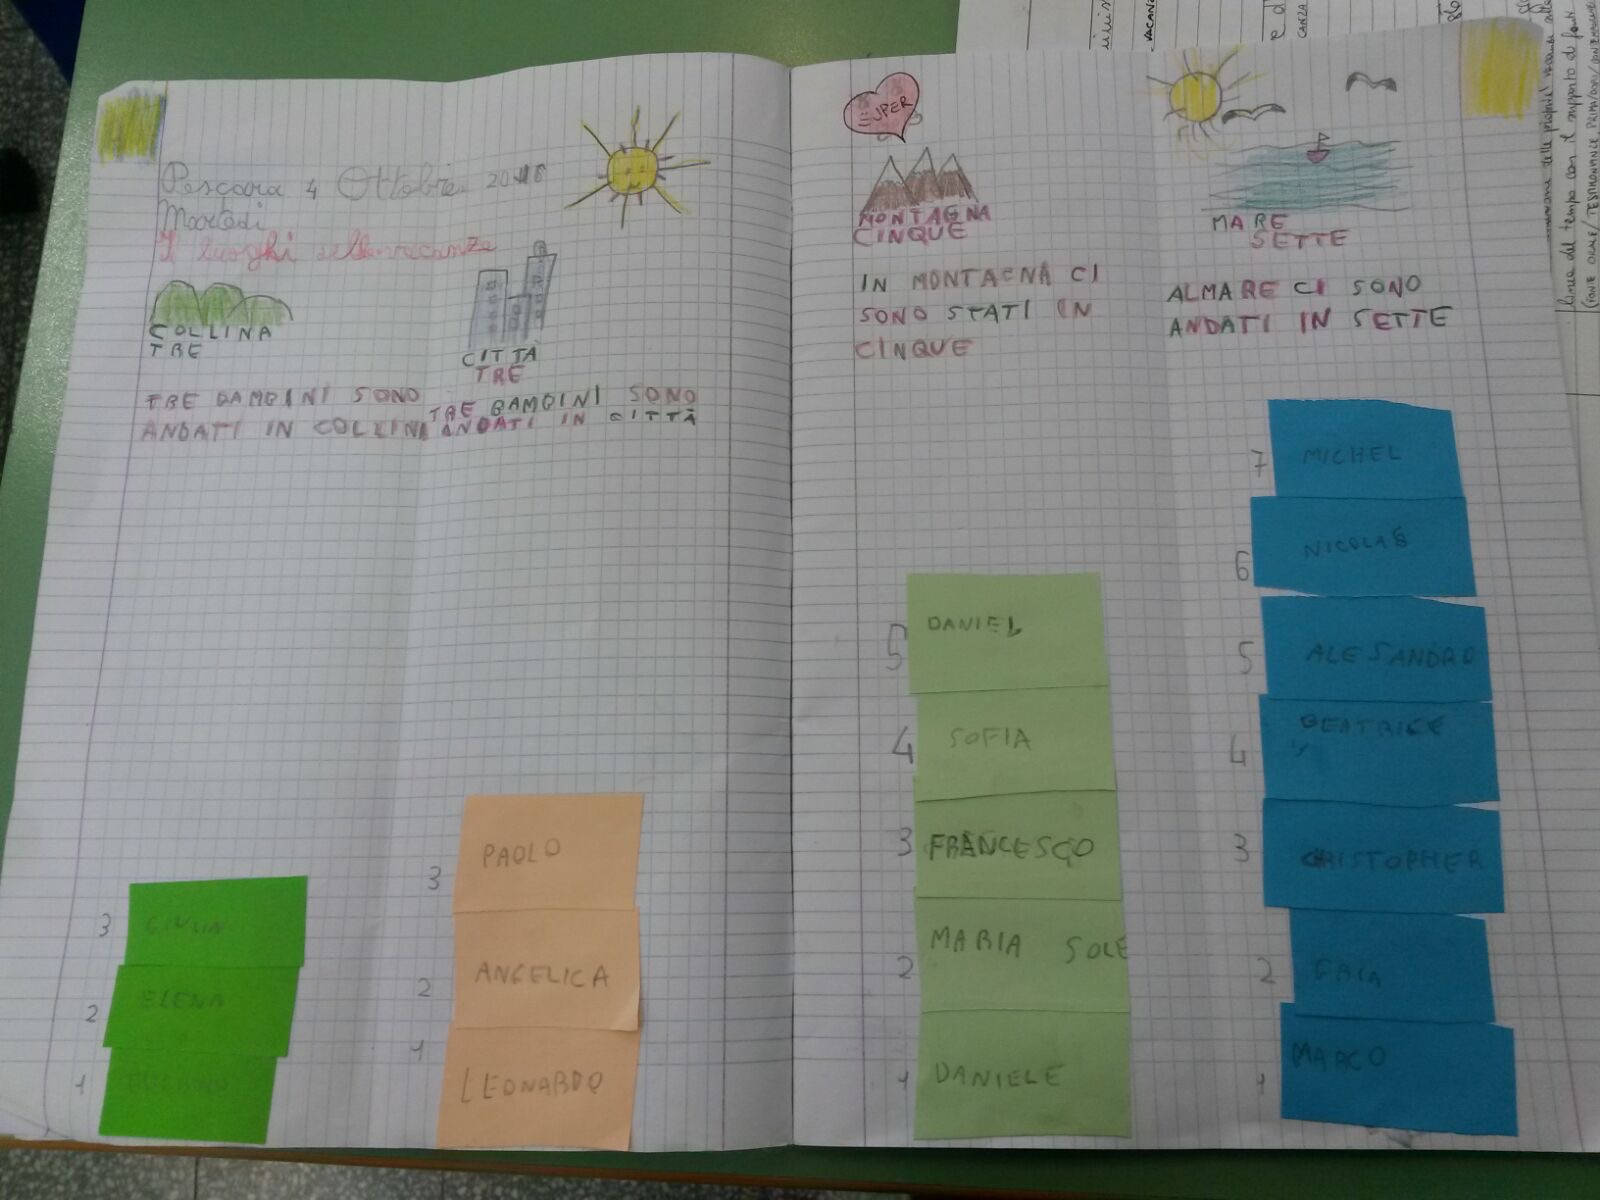 Pescara 4 Ottobre 2016
Martedì
I luoghi delle vacanze
COLLINA
TRE
CITTÀ
TRE
TRE BAMBINI SONO
ANDATI IN COLLINA
TRE BAMBINI SONO
ANDATI IN CITTÀ
3 GIULIA
2 ELENA
1
3 PAOLO
2 ANGELICA
1 LEONARDO
SUPER
MONTAGNA
CINQUE
IN MONTAGNA CI
SONO STATI IN
CINQUE
MARE
SETTE
ALMARE CI SONO
ANDATI IN SETTE
5 DANIEL
4 SOFIA
3 FRANCESCO
2 MARIA SOLE
1 DANIELE
7 MICHEL
6 NICOLAS
5 ALESANDRO
4 BEATRICE
3 CHRISTOPHER
2 GAIA
1 MARCO
linea del tempo con il supporto di fonti